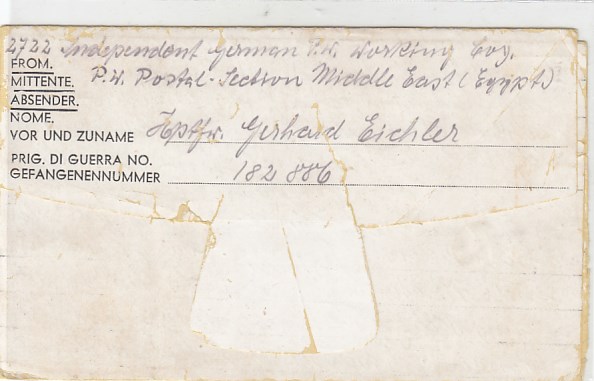 2722 Independent German P.W. Working Coy.
FROM.
P.W. Postal-Section Middle East (Egypt)
MITTENTE.
ABSENDER.
NOME.
VOR UND ZUNAME Hptfw. Gerhard Eichler
PRIG. DI GUERRA NO.
GEFANGENENNUMMER 182 886